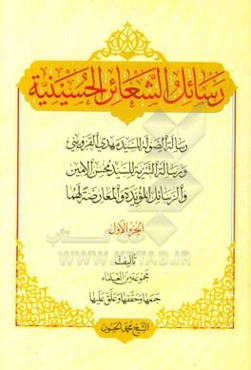 رسائل الشعائر الحسينية
رسالة الصولة للسيد مهدي القزويني
ورسالة التنزيه للسيد محسن الأمين
والرسائل المؤيدة والمعارضة لهما
الجزء الأول
تأليف
مجموعة من العلماء
جمعها وحققها وعلق عليها
الشيخ محمد الحسون